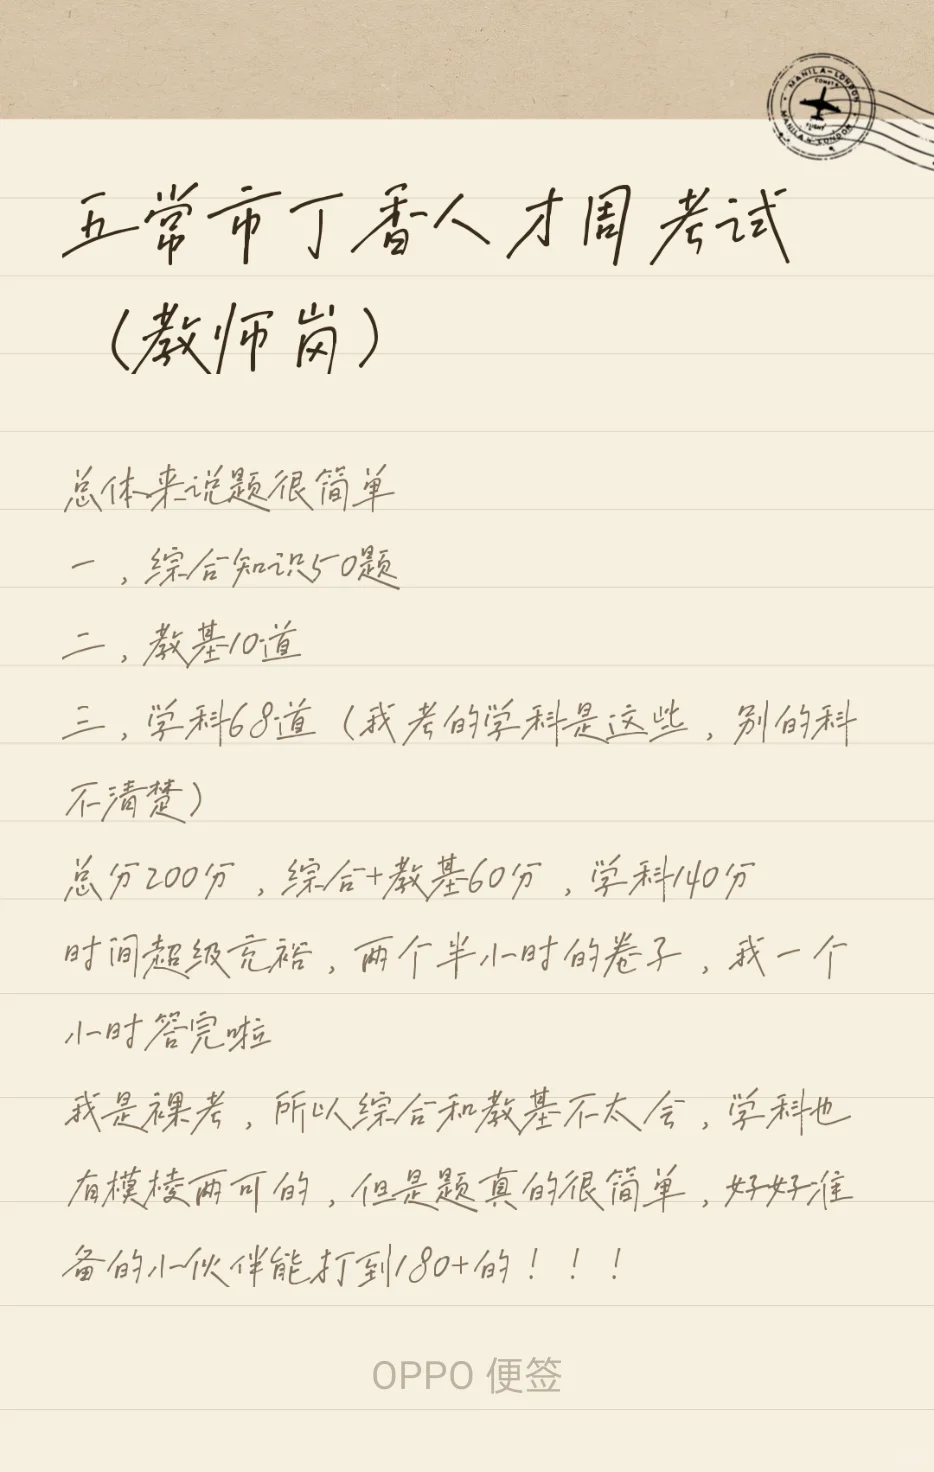 MANILA-LONDON
MANILA-LONDON
五常市丁香人才周考试
（教师岗）
总体来说题很简单
一，综合知识50题
二，教基10道
三，学科68道（我考的学科是这些，别的科
不清楚）
总分200分，综合+教基60分，学科140分
时间超级充裕，两个半小时的卷子，我一个
小时答完啦
我是裸考，所以综合和教基不太会，学科也
有模棱两可的，但是题真的很简单，好好准
备的小伙伴能打到180+的！！！
OPPO 便签